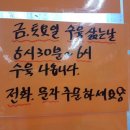 금.토요일 수육 삶는날
5시30분~6시
수육 나옵니다.
전화. 문자 주문하세요